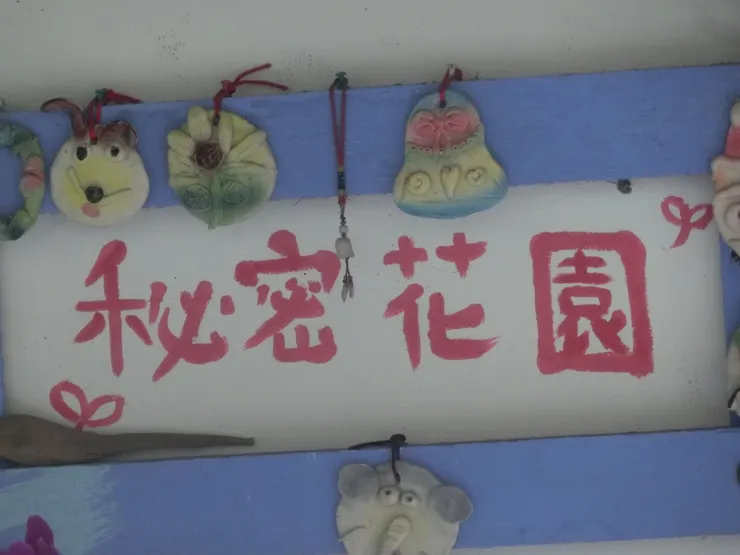 秘密花園